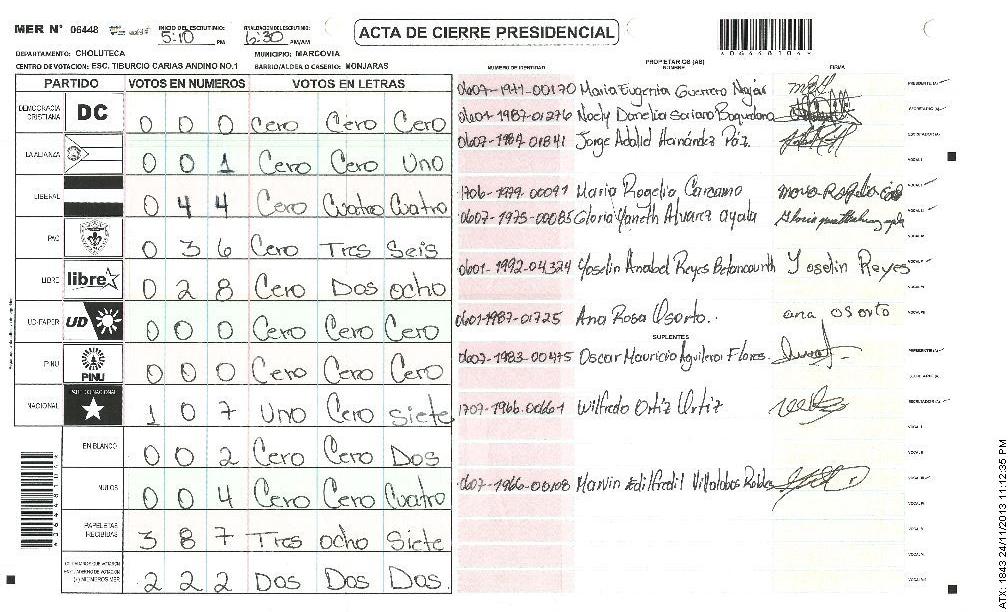 MER N° 06448 INICIO DEL ESCRUTINIO: 5:10 PM FINALIZACION ESCRUTINIO: 6:30 PM/AM
ACTA DE CIERRE PRESIDENCIAL
DEPARTAMENTO: CHOLUTECA MUNICIPIO: MARCOVIA
CENTRO DE VOTACION: ESC. TIBURCIO CARIAS ANDINO NO.1 BARRIO/ALDEA O CASERIO: MONJARAS
PARTIDO VOTOS EN NUMEROS VOTOS EN LETRAS
DEMOCRACIA CRISTIANA DC 0 0 0 Cero Cero Cero
LA ALIANZA 0 0 1 Cero Cero Uno
LIBERAL 0 4 4 Cero Cuatro Cuatro
PAC 0 3 6 Cero Tres Seis
LIBRE libre 0 2 8 Cero Dos ocho
UD-FAPER UD 0 0 0 Cero Cero Cero
PINU PINU 0 0 0 Cero Cero Cero
NACIONAL PARTIDO NACIONAL 1 0 7 Uno Cero Siete
EN BLANCO 0 0 2 Cero Cero Dos
NULOS 0 0 4 Cero Cero Cuatro
PAPELETAS RECIBIDAS 3 8 7 Tres ocho Siete
2 2 2 Dos Dos Dos
NUMERO DE IDENTIDAD PROPIETARIOS (AS) NOMBRE FIRMA
0607-1971-00170 Maria Eugenia Guerrero
0601-1987-01276 Noely Danelia
0607-1984-01841 Jorge Adalid Hernández Páz.
1706-1979-00091 Maria Rogelia Carcamo
0607-1975-00085 Gloria Yaneth Alvarez ayala
0601-1992-04324 Yoselin Anabel Reyes Betancourth Yoselin Reyes
0601-1987-01725 Ana Rosa Osorto. ana osorto
SUPLENTES
0607-1983-00475 Oscar Mauricio Aguilera Flores.
1707-1966-00661 Wilfredo Ortiz Ortiz
0607-1966-00108 Marvin Villalobos
ATX: 1843 24/11/2013 11:12:35 PM